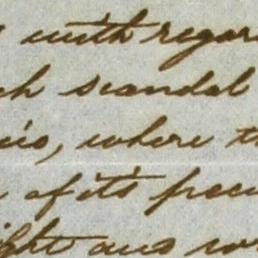 with regar
ch scandal
io, where th
of it's pecu
ight and wo